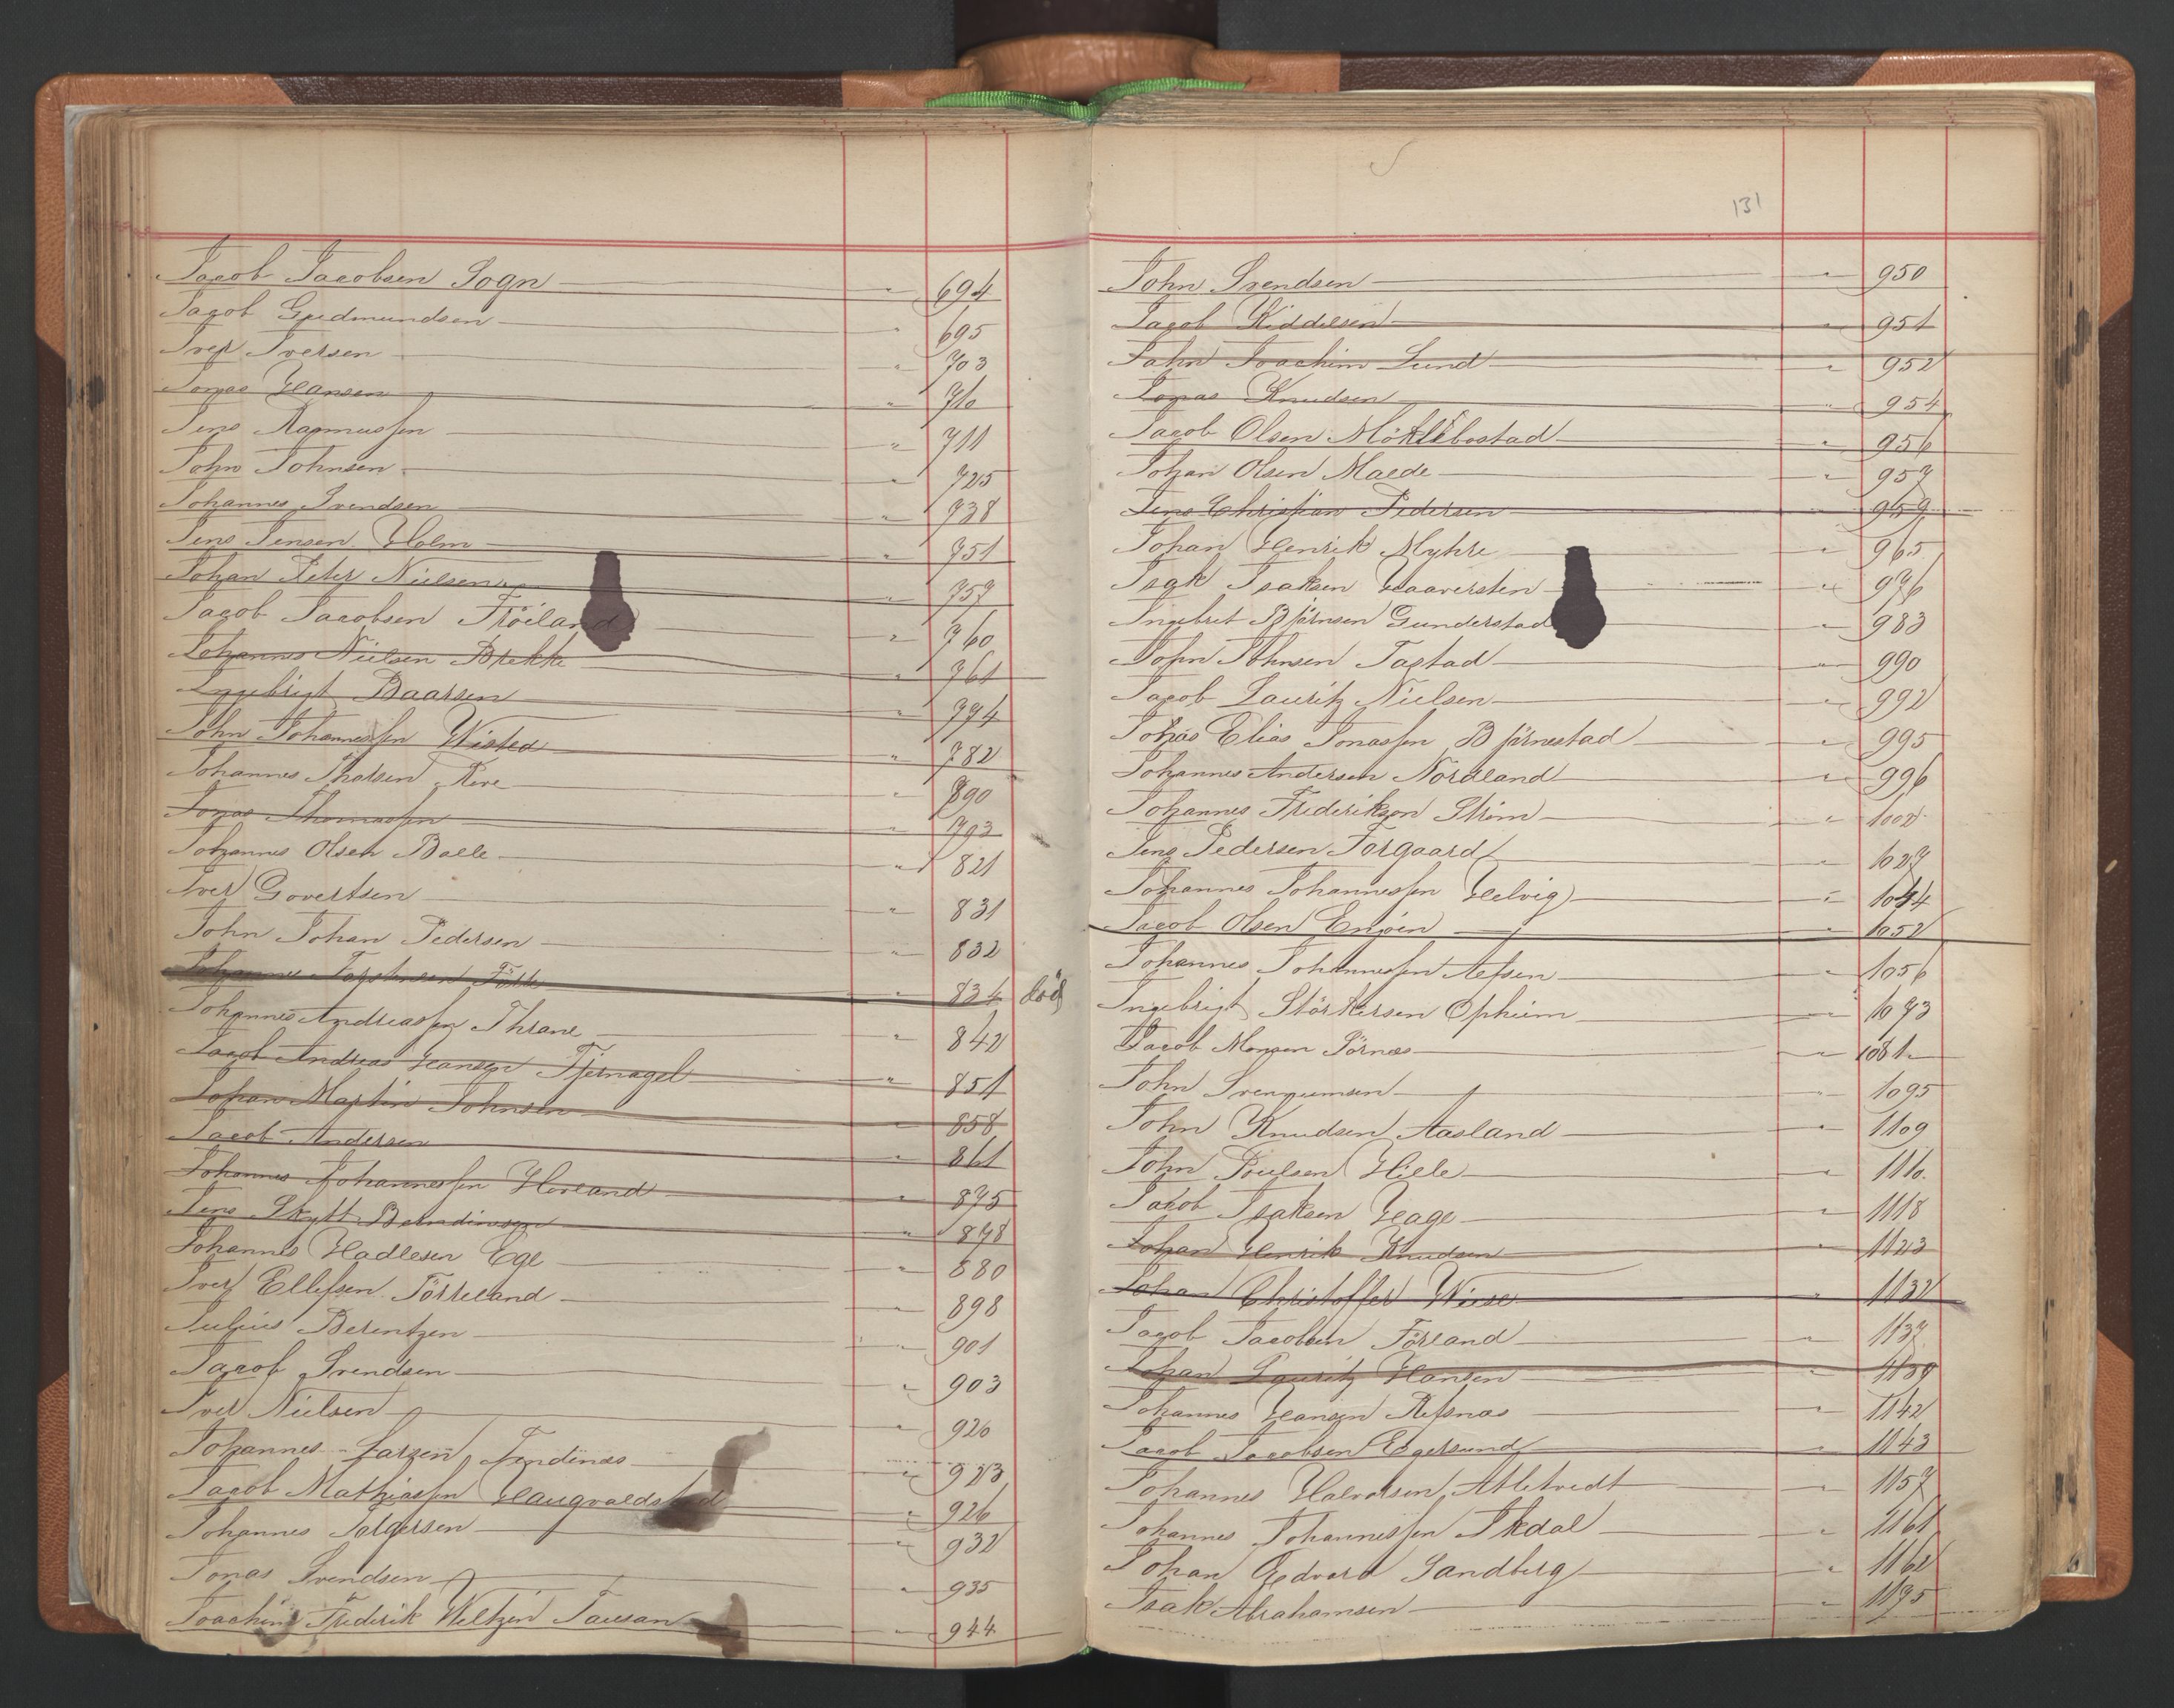 Jacob Jacobsen Sogn " 694
Jacob Gudmundsen " 695
Iver Iversen " 703
Jonas Hansen " 710
Jens Rasmussen " 711
John Johnsen " 725
Johannes Svendsen " 738
Jens Jensen Holm " 751
Johan Peter Nielsen " 757
Jacob Jacobsen Fröiland " 760
Johannes Nielsen Brekke " 761
Ingebrigt Baarsen " 774
John Johannessen Wisted " 782
Johannes Thorsen Reve " 890
Jonas Thomassen " 793
Johannes Olsen Balle " 821
Iver Govertsen " 831
John Johan Pedersen " 832
Johannes Torstensen " 834 död
Johannes Andreassen Thrane " 842
Jacob Andreas Hansen Tjernagel " 851
Johan Martin Johnsen " 858
Jacob Andersen " 861
Johannes Johannessen Hovland " 875
Jens Skytt Berndinsen " 878
Johannes Hadlesen Ege " 880
Iver Ellefsen Törreland " 898
Julius Berentzen " 901
Jacob Svendsen " 903
Iver Nielsen " 920
Johannes Larsen Findenæs " 923
Jacob Mathiassen Haugvaldstad " 926
Johannes Salgersen " 932
Jonas Svendsen " 935
Joachim Frederik Weltzin Tausan " 944
131
John Svendsen " 950
Jacob Kiddelsen " 951
John Joachim Lund " 952
Jonas Knudsen " 954
Jacob Olsen Möklebostad " 956
Johan Olsen Malde " 957
Jens Christian Pedersen 959
Johan Henrik Myhre " 965
Isak Isaksen Haaversten " 976
Ingebret Björnsen Gunderstad 983
John Johnsen Tastad " 990
Jacob Lauritz Nielsen " 992
Jonas Elias Jonassen Björnestad " 995
Johannes Andersen Nordland " 996
Johannes Frederiksen Ström " 1002
Jens Pedersen Torgaard " 1027
Johannes Johannessen Helvig " 1044
Jacob Olsen Enöen " 1052
Johannes Johannessen Aefsen " 1056
Ingebrigt Störkersen Opheim " 1073
Jacob Monsen Sörnæs " 1081
John Svenumsen " 1095
John Knudsen Aasland " 1109
John Poulsen Hille " 1110
Jacob Isaksen Hage " 1118
Johan Henrik Knudsen " 1123
Johan Christoffer Wiese " 1132
Jacob Jacobsen Förland " 1137
Johan Lauritz Hansen " 1139
Johannes Hansen Refsnæs " 1142
Jacob Jacobsen Egersund " 1143
Johannes Halvorsen Atletvedt " 1157
Johannes Johannessen Ikdal " 1161
Johan Edvard Sandberg " 1162
Isak Abrahamsen " 1175